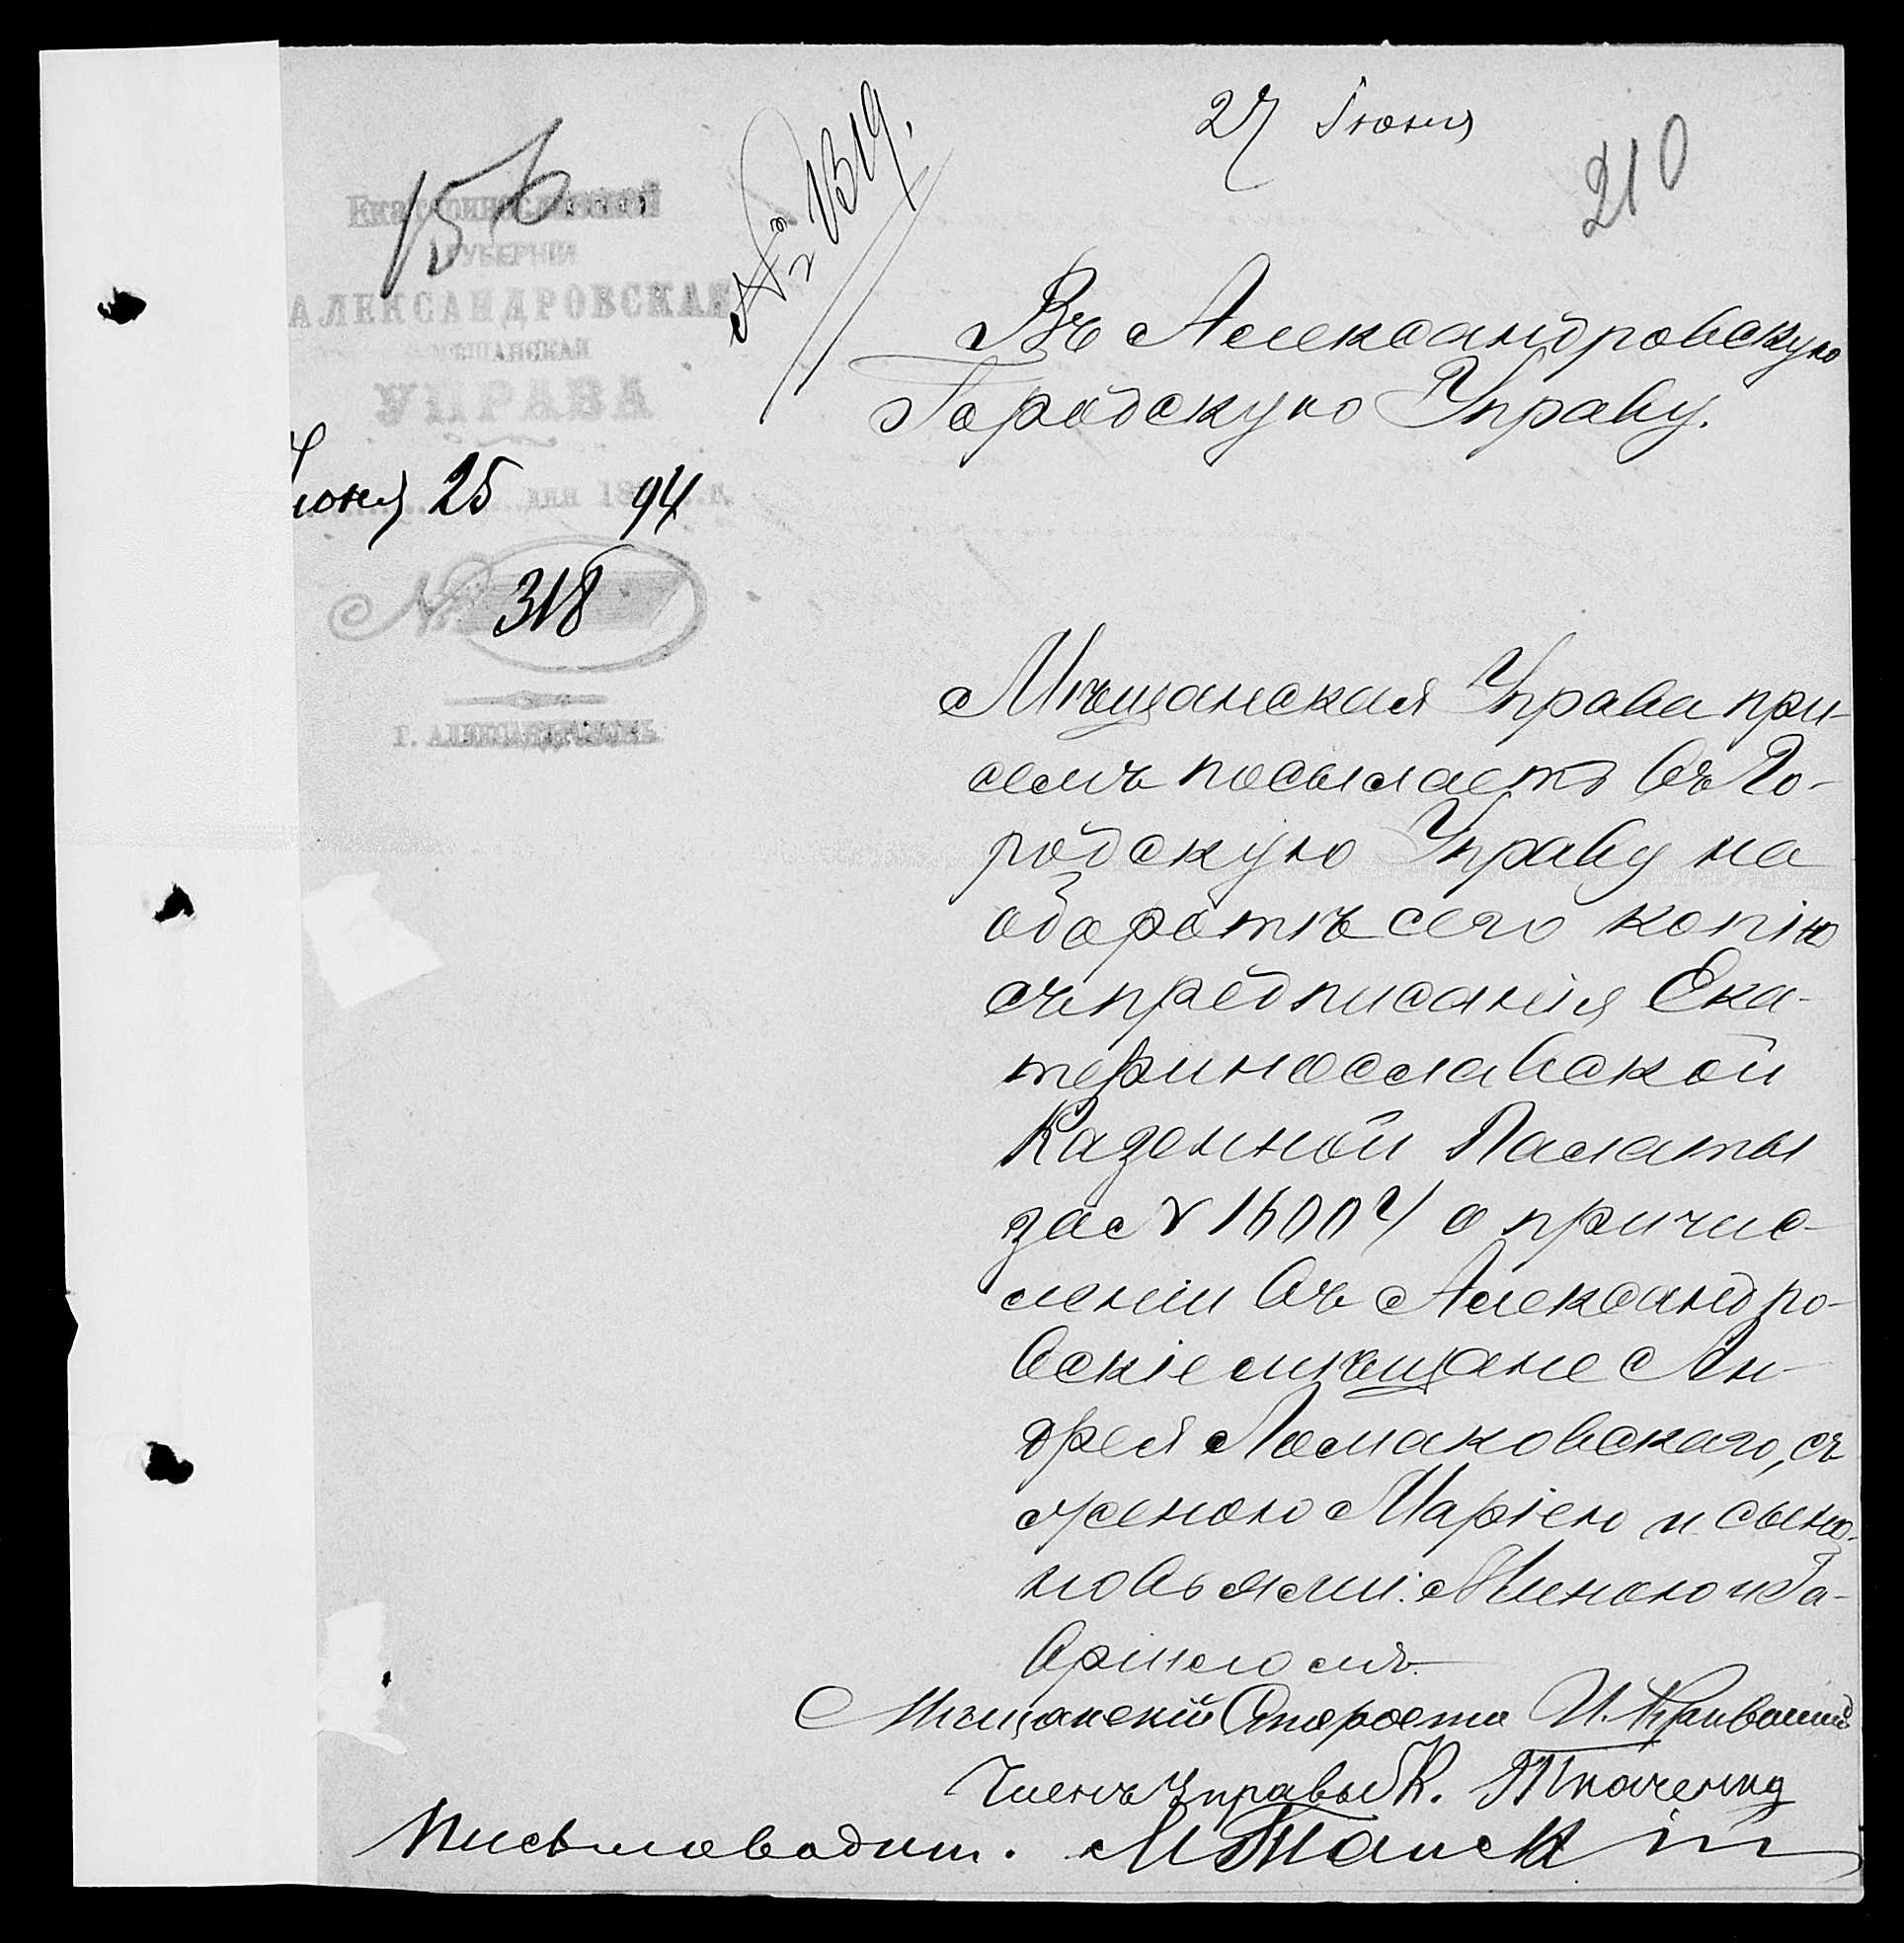 27 Июня
210
156
№ 1319.
Екатеринославской
ГУБЕРНІИ
АЛЕКСАНДРОВСКАЯ
МѢЩАНСКАЯ
УПРАВА
Июня 25 дня 1894 г.
№ 318
Г. АЛЕКСАНДРОВСКЪ
Въ Александровскую
Городскую Управу.
Мѣщанская Управа при-
семъ посылаетъ въ Го-
родскую Управу на
оборотѣ сего копію
съ предписанія Ека-
теринославской
Казенной Палаты
за №
о причис-
леніи въ Александро-
вскіе мѣщане Ан-
дрея Ломаковскаго, съ
женою Маріею и сыно-
новьями: Миною и Га-
вріиломъ.
Мѣщанскій Староста И.
Членъ Управы К. Ткаченко
Письмоводит. М